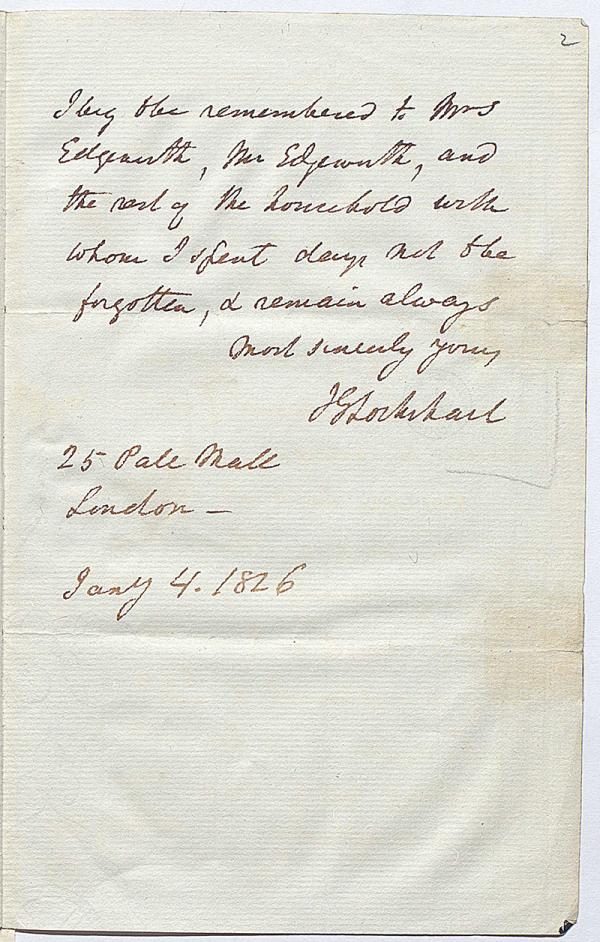 2
I beg to be remembered to Mrs
Edgeworth, Mr Edgeworth, and
the rest of the household with
whom I spent days not to be
forgotten, & remain always
Most sincerely yours,
JGLockhart
25 Pall Mall
London —
Jany 4. 1826